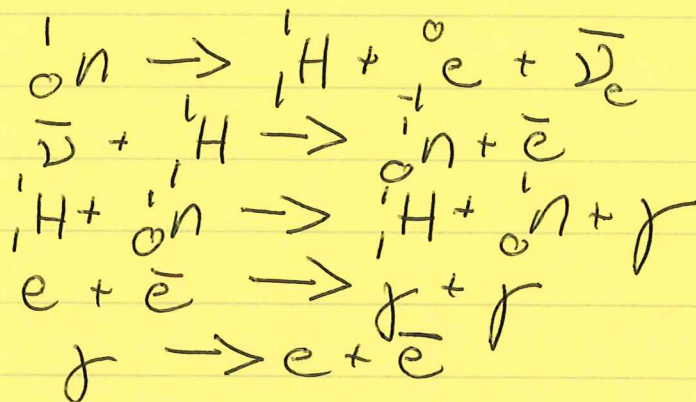 ¹₀n → ¹₁H + ⁰₋₁e + ν̅ₑ
ν̅ + ¹₁H → ¹₀n + e̅
¹₁H + ¹₀n → ¹₁H + ¹₀n + γ
e + e̅ → γ + γ
γ → e + e̅